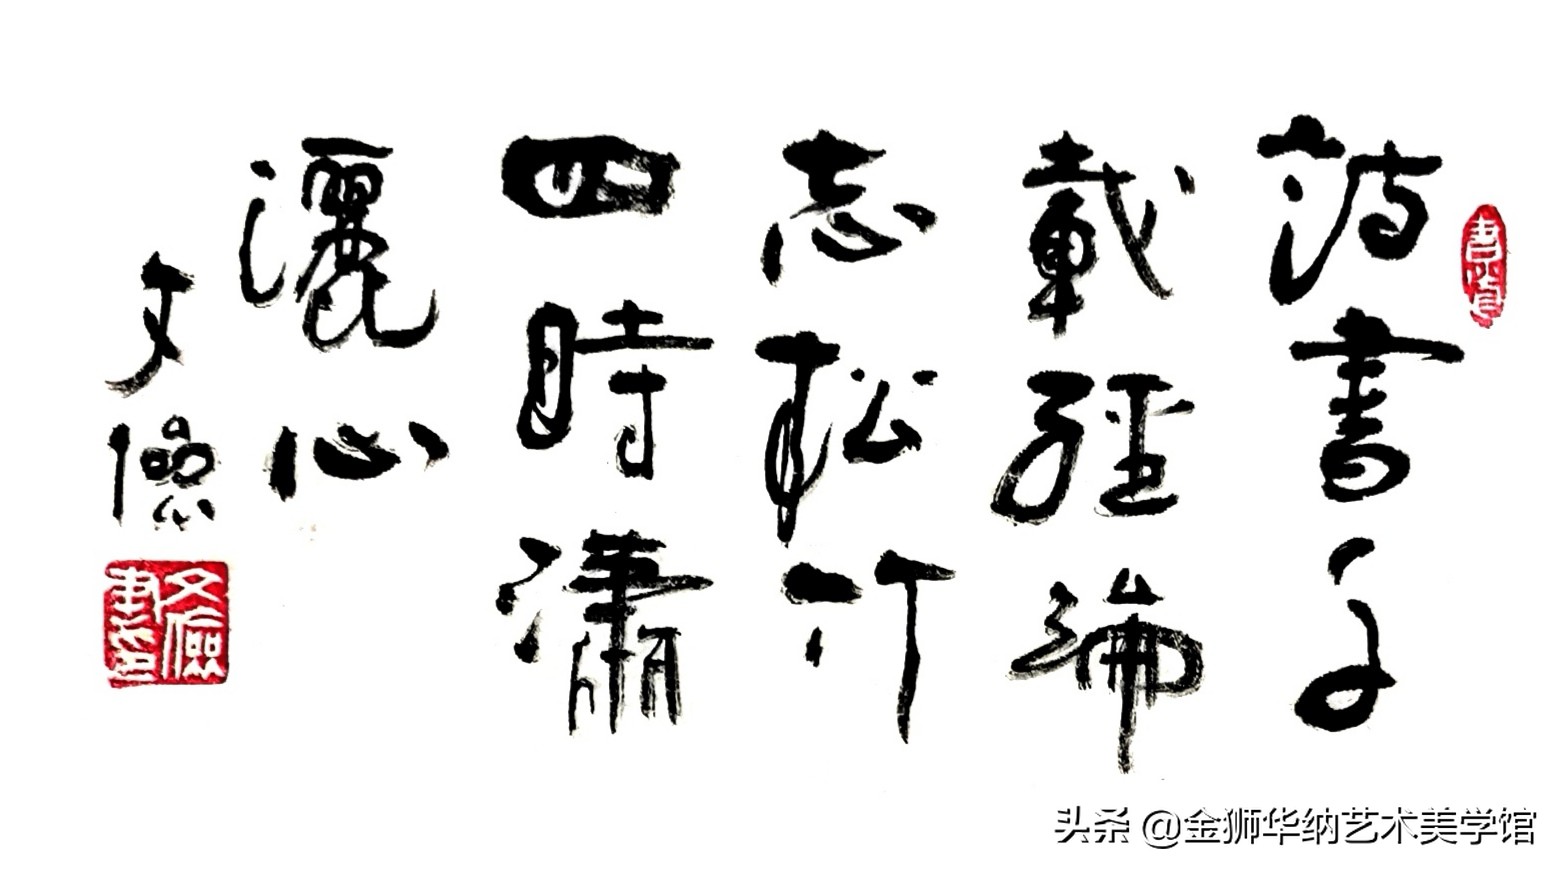 詩書千
載經綸
志松竹
四時瀟
灑心
文儉
文儉書印
头条 @金狮华纳艺术美学馆